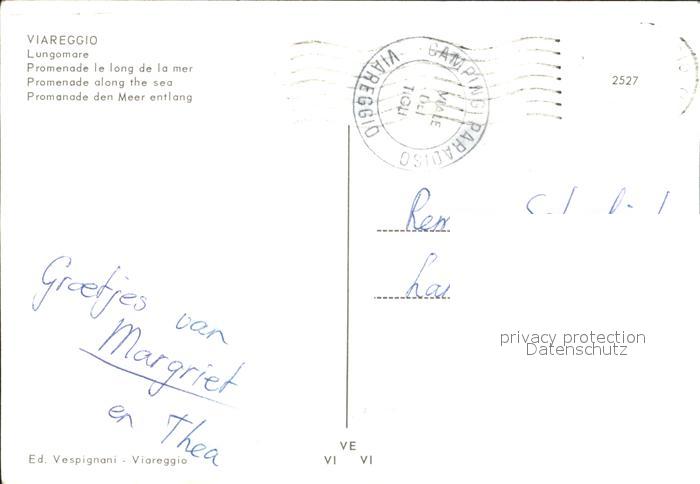 VIAREGGIO
Lungomare
Promenade le long de la mer
Promenade along the sea
Promanade den Meer entlang
CAMPING PARADISO VIAREGGIO
VIALE
DEI
TIGLI
2527
Groetjes van
Margriet
en Thea
privacy protection
Datenschutz
Ed. Vespignani - Viareggio
VE
VI VI